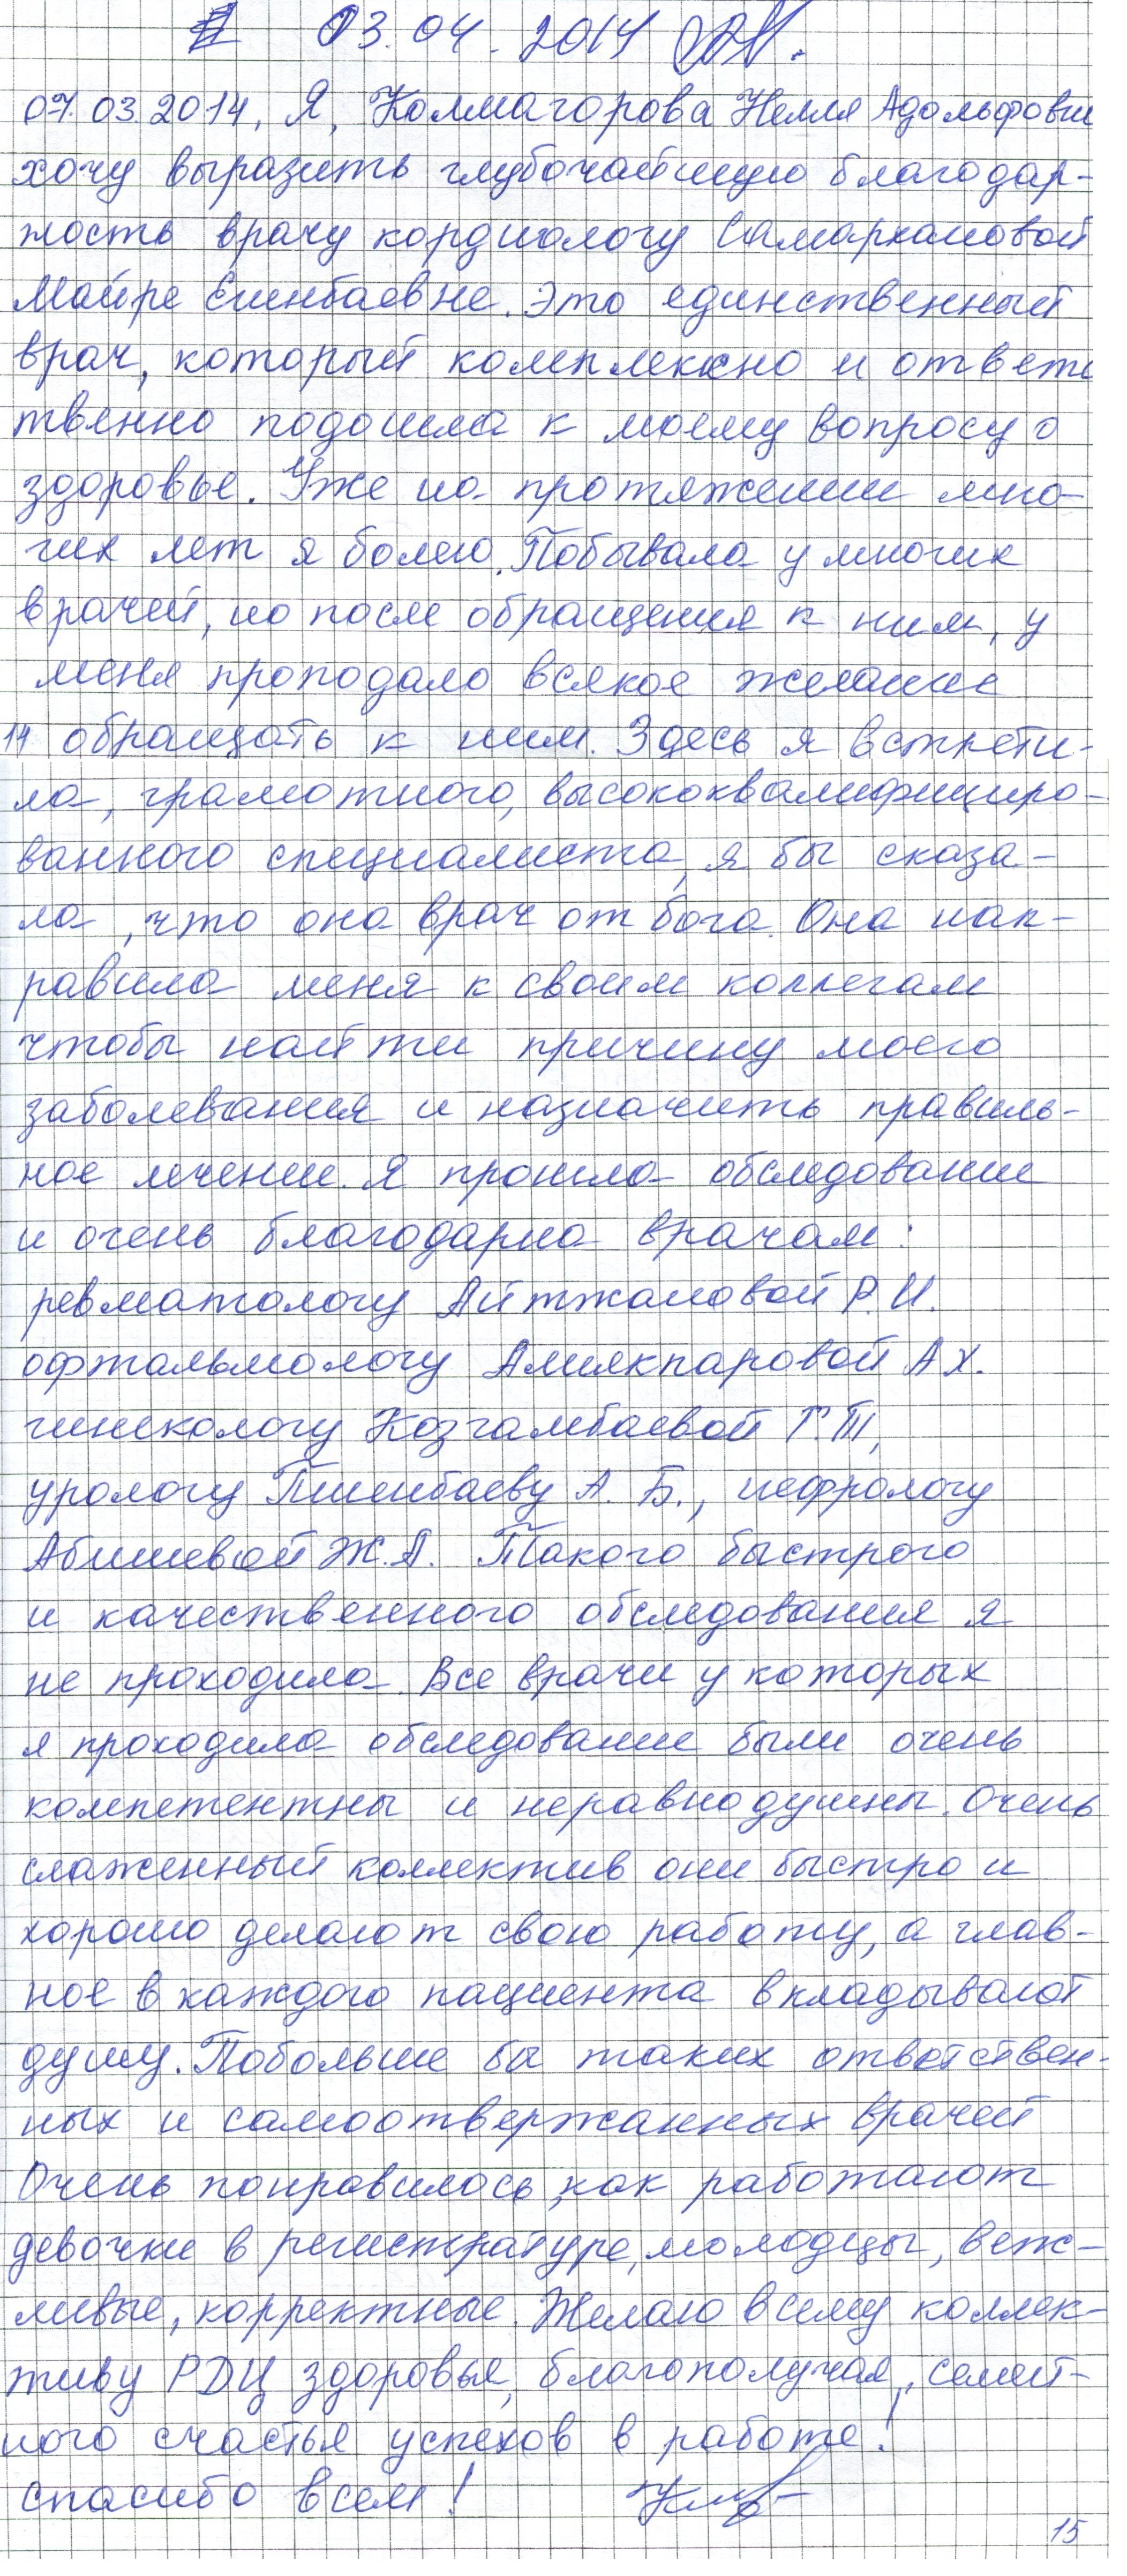 03.04.2014
07.03.2014, Я, Колмагорова Нелля Адольфовн
хочу выразить глубочайшую благодар-
ность врачу кордиологу Самархановой
Майре Ешенбаевне. Это единственный
врач, который комплексно и ответс
твенно подошла к моему вопросу о
здоровье. Уже на протяжении мно-
гих лет я болею. Побывала у многих
врачей, но после обращения к ним, у
меня проподало всякое желание
14 обращать к ним. Здесь я встрети-
ла, грамотного, высококвалифициро-
ванного специалиста, я бы сказа-
ла, что она врач от бога. Она нап-
равила меня к своим коллегам
чтобы найти причину моего
заболевания и назначить правиль-
ное лечение. Я прошла обследование
и очень благодарна врачам:
ревматологу Айтжановой Р.И.
офтальмологу Амиякпаровой А Х.
гинекологу Козгамбаевой Г.Т,
урологу Пшенбаеву А. Б., нефрологу
Абишевой Ж.А. Такого быстрого
и качественного обследования я
не проходила. Все врачи у которых
я проходила обследование были очень
компетентны и неравнодушны. Очень
слаженный коллектив они быстро и
хорошо делают свою работу, а глав-
ное в каждого пациента вкладывают
душу. Побольше бы таких ответствен-
ных и самоотвержанных врачей
Очень понравилось, как работают
девочки в регистратуре, молодцы, веж-
ливые, корректные. Желаю всему коллек-
тиву РДЦ здоровья, благополучая, семей-
ного счастья успехов в работе!
спасибо всем!
15